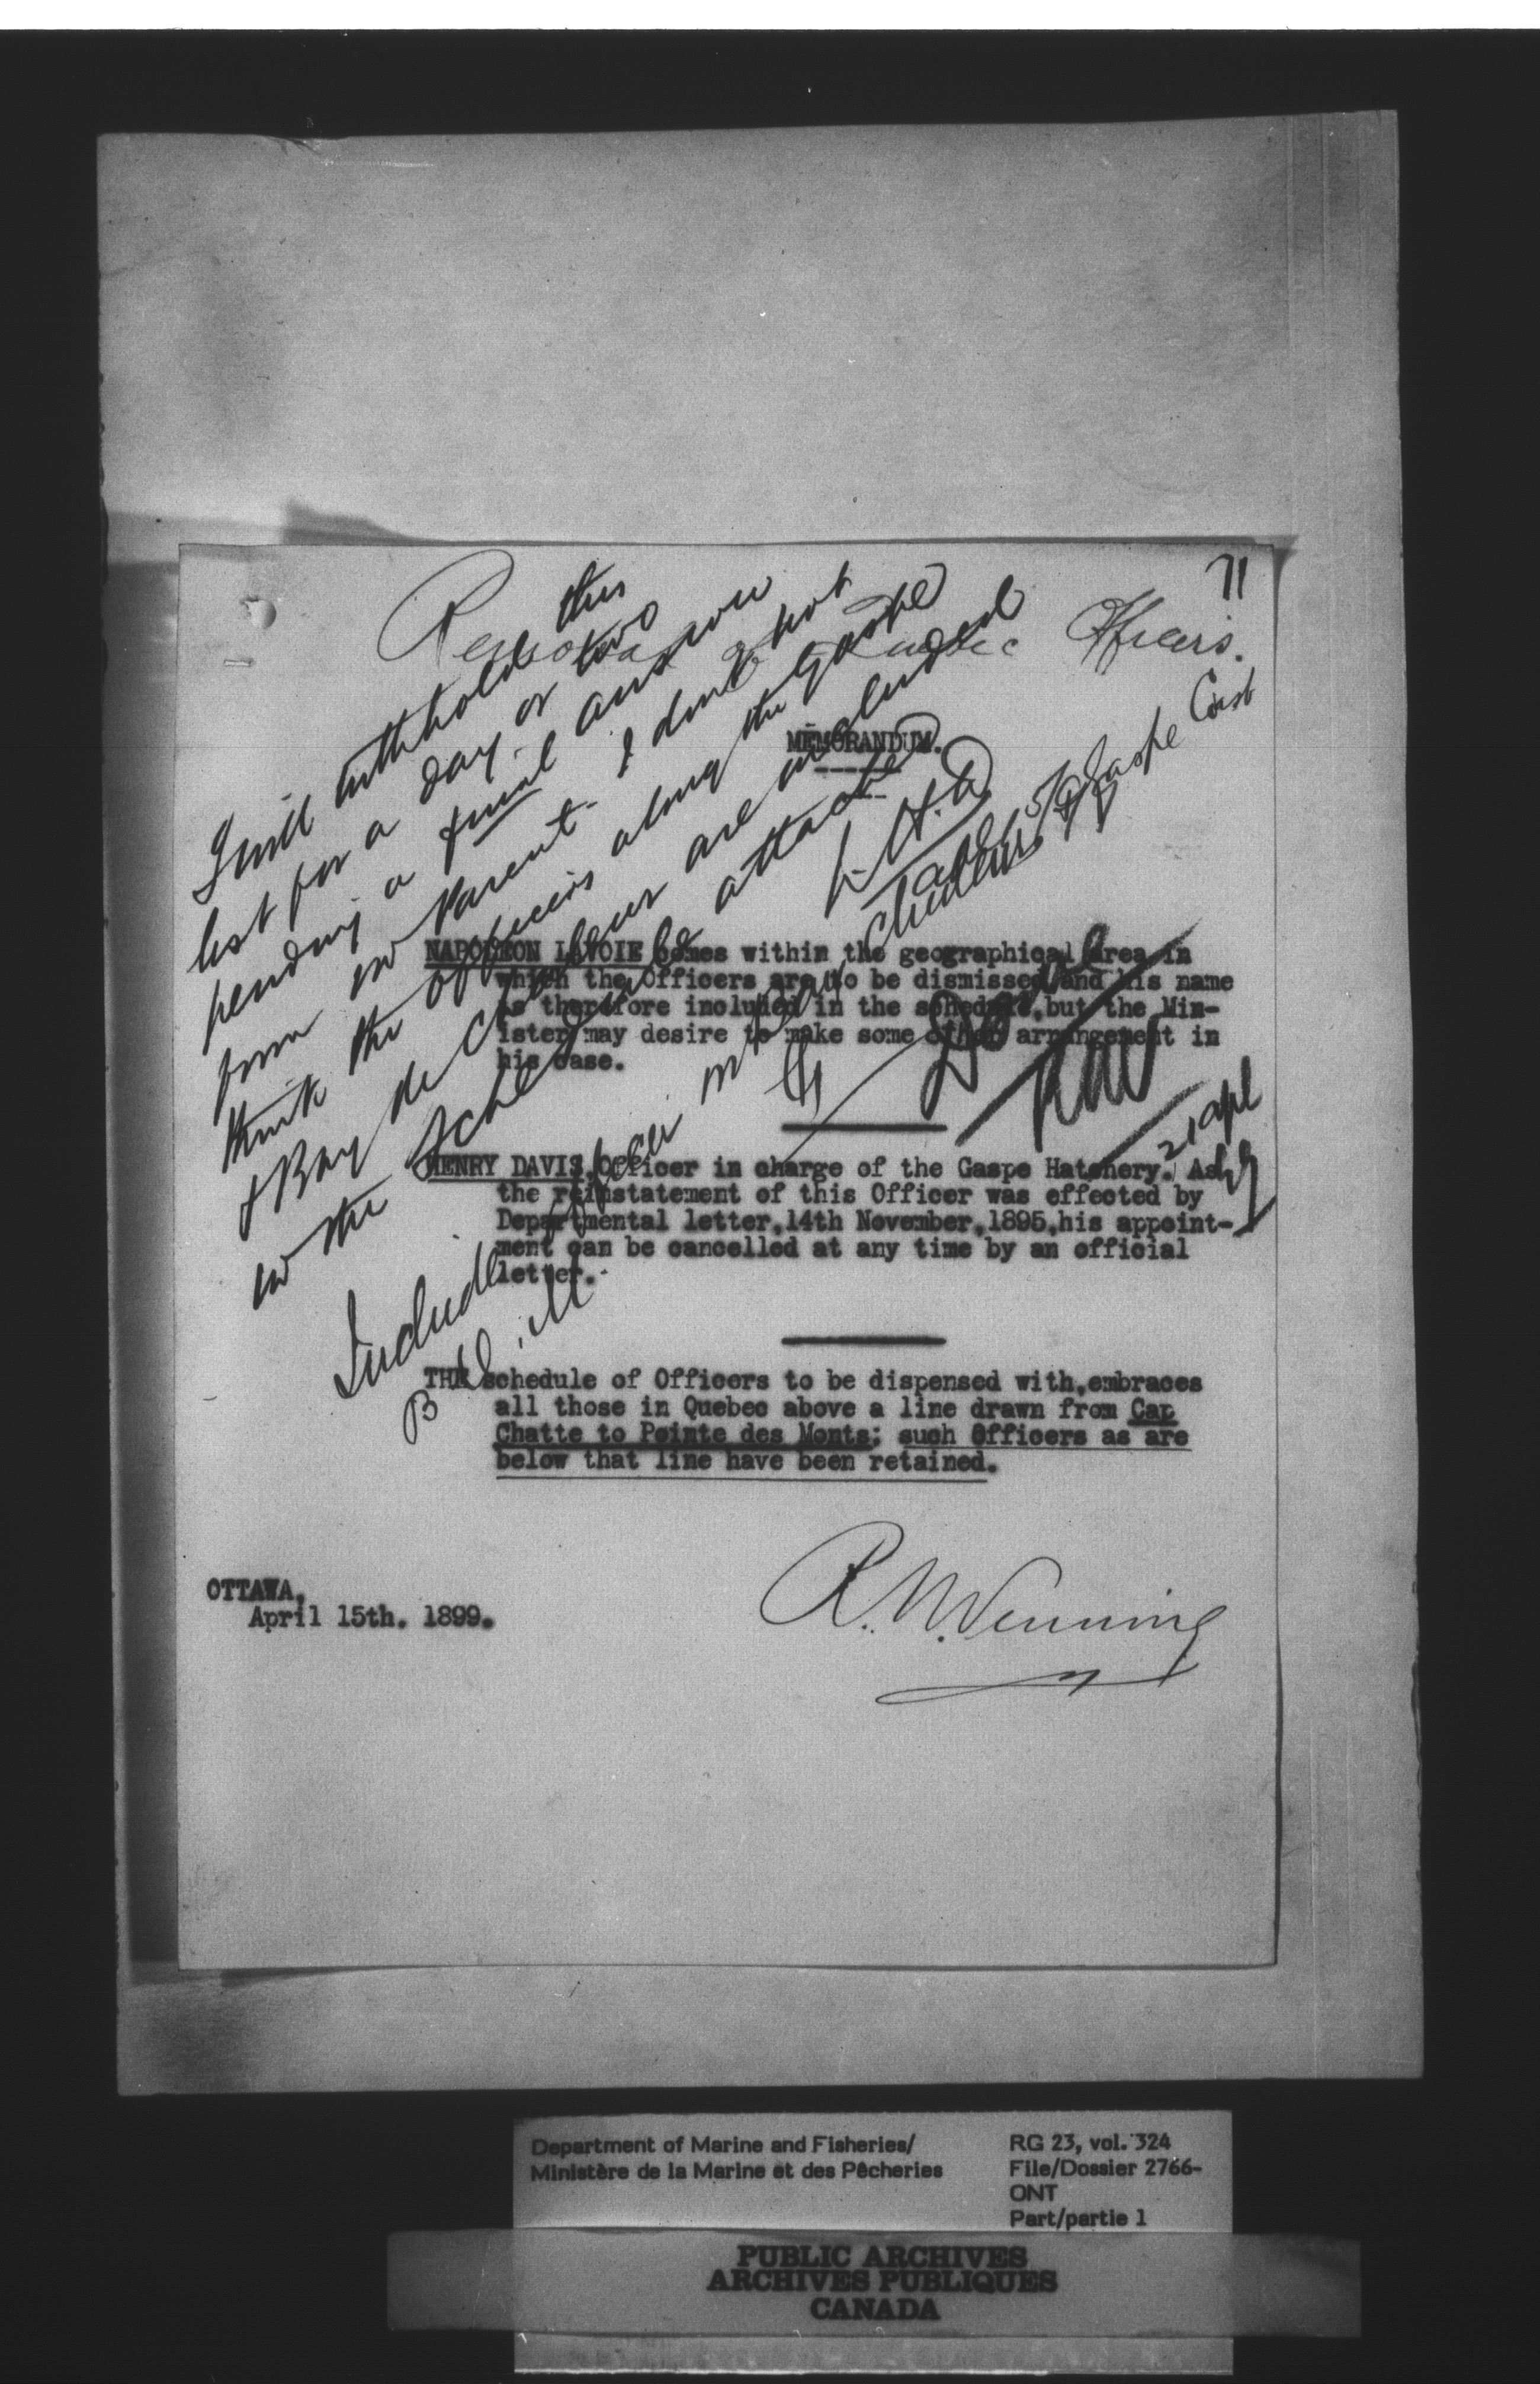 71
Officers.
I will withhold this
list for a day or two
pending a final answer
from Mr Parent. I don't not
think the officers along the Gaspe
& Bay de Chaleur are included
in the Schedule attached
L. H. D.
MEMORANDUM.
NAPOLEON LAVOIE comes within the geographical area in
which the Officers are to be dismissed and his name
is therefore included in the schedule, but the Min-
ister may desire to make some other arrangement in
his case.
21 apl
HENRY DAVIS, Officer in charge of the Gaspe Hatchery. As
the reinstatement of this Officer was effected by
Departmental letter, 14th November, 1895, his appoint-
ment can be cancelled at any time by an official
letter.
Include
Gaspe Coast
THE schedule of Officers to be dispensed with, embraces
all those in Quebec above a line drawn from Cap
Chatte to Pointe des Monts; such Officers as are
below that line have been retained.
R. N. Venning
OTTAWA,
April 15th. 1899.
Department of Marine and Fisheries/
Ministère de la Marine et des Pêcheries
RG 23, vol. 324
File/Dossier 2766-
ONT
Part/partie 1
PUBLIC ARCHIVES
ARCHIVES PUBLIQUES
CANADA